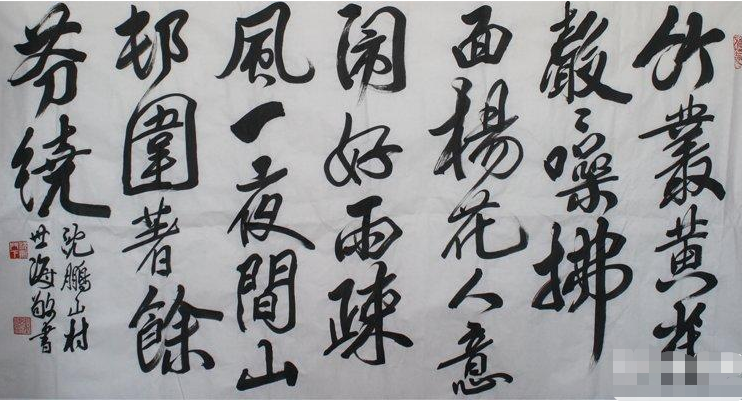 竹叢黄雀
聲々噪拂
面楊花人意
闹好雨疎
風一夜間山
邨圍著餘
芬繞
沈鵬山村
世海敬書